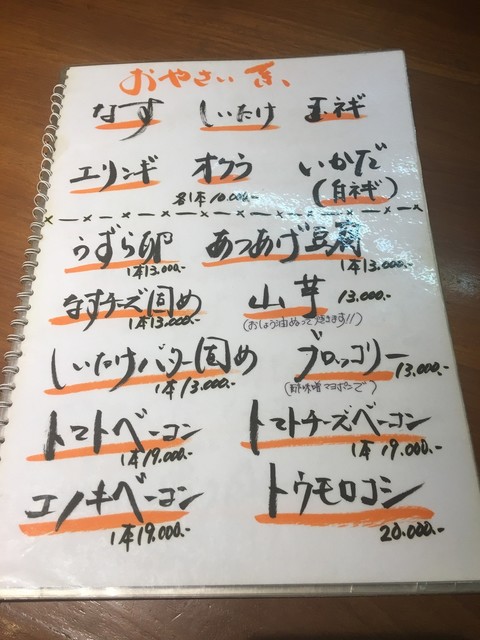 おやさい系
なす しいたけ 玉ネギ
エリンギ オクラ いかだ
各1本10.000.- (白ネギ)
うずら卵 あつあげ豆腐
1本13.000.- 1本13.000.-
なすチーズ固め 山芋 13.000.-
1本13.000.- (おしょう油ぬって焼きます!!)
しいたけバター固め ブロッコリー
1本13.000.- (酢味噌マヨネーズで) 13.000.-
トマトベーコン トマトチーズベーコン
1本19.000.- 1本19.000.-
エノキベーコン トウモロコシ
1本19.000.- 20.000.-